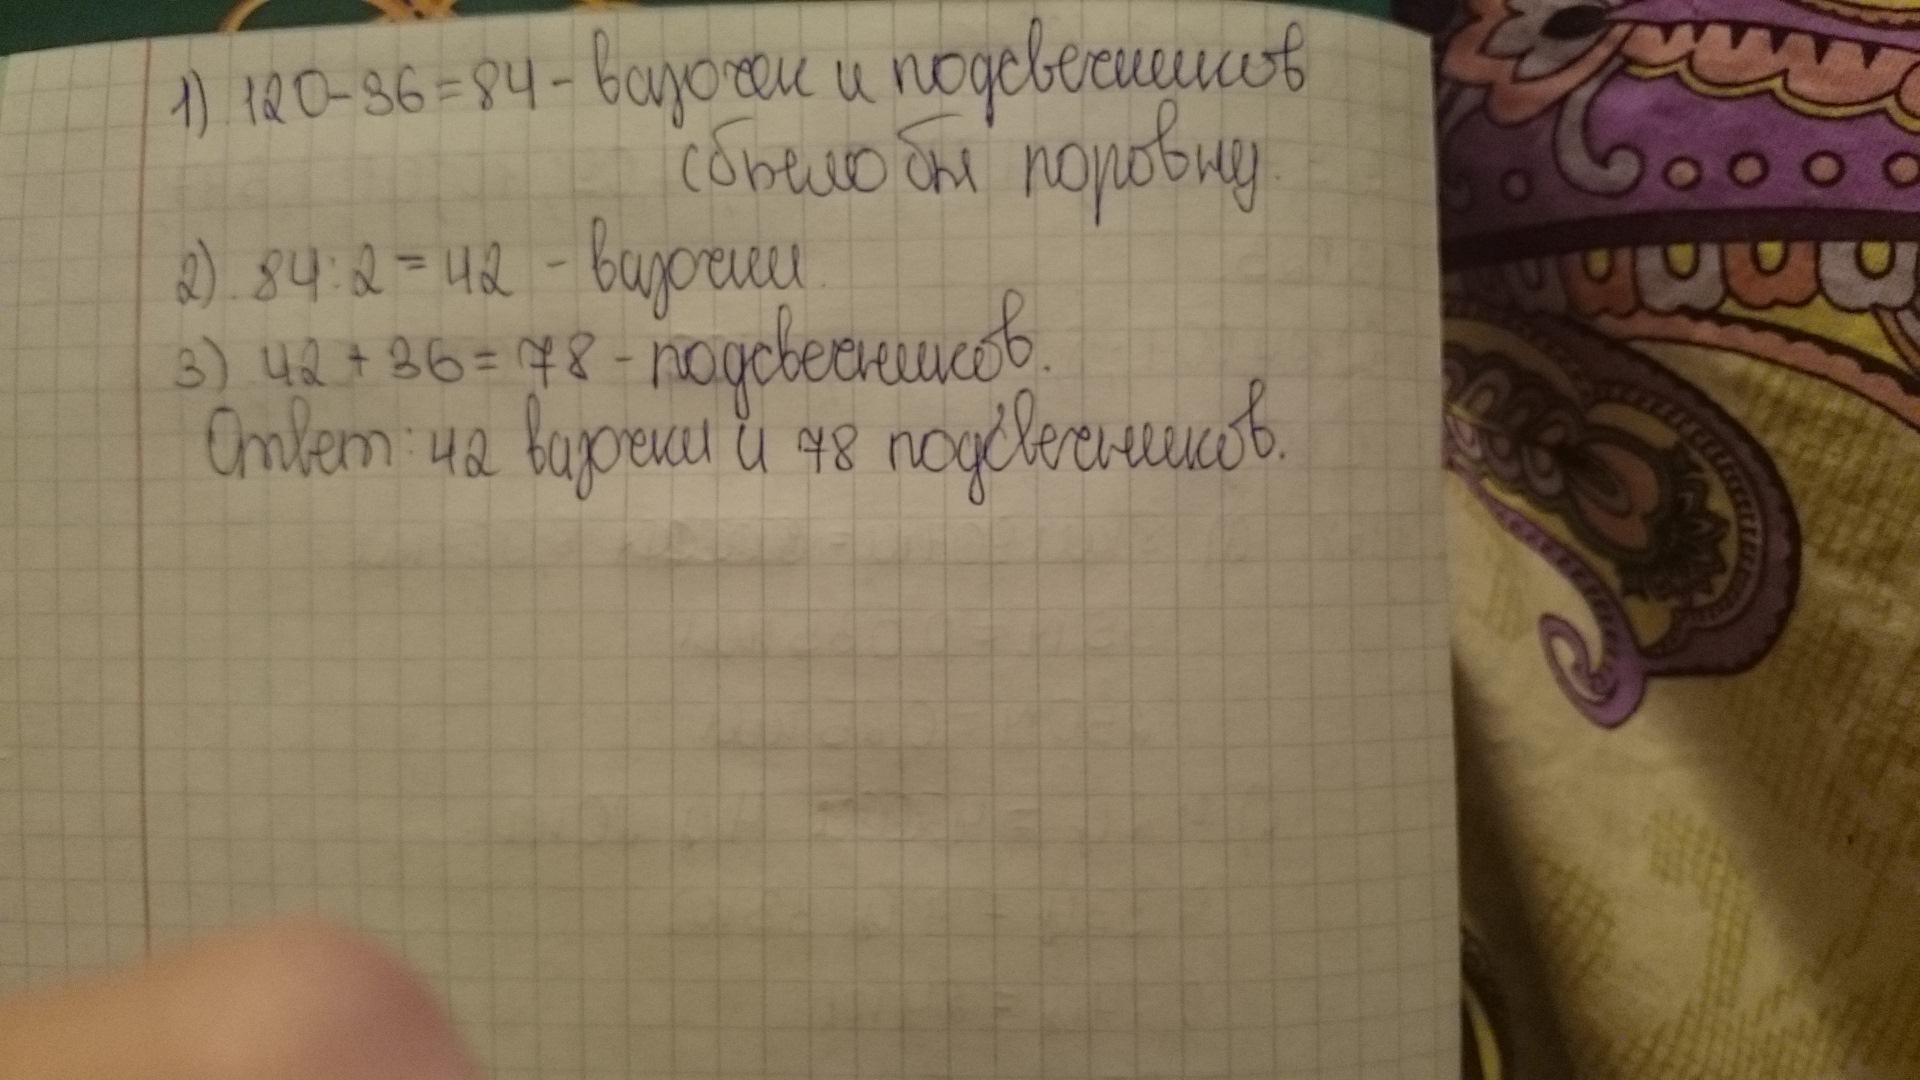 1) 120-36=84 - вазочек и подсвечников
(было бы поровну.
2) 84:2=42 - вазочки.
3) 42+36=78 - подсвечников.
Ответ: 42 вазочки и 78 подсвечников.